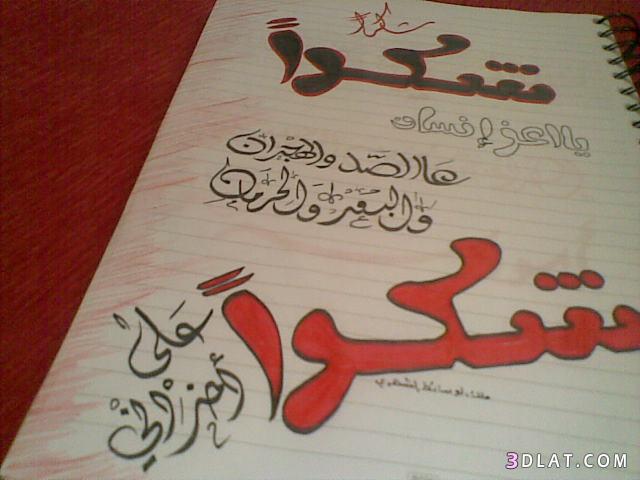 شكراً
شكراً
يا اعز إنسان
عالصد والهجران
والبعد والحرمان
شكراً
على
أحزاني
3DLAT.COM